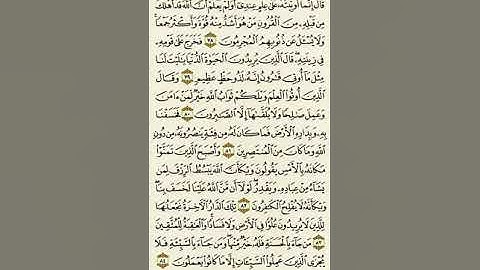 قَالَ إِنَّمَآ أُوتِيتُهُۥ عَلَىٰ عِلْمٍ عِندِىٓۚ أَوَلَمْ يَعْلَمْ أَنَّ ٱللَّهَ قَدْ أَهْلَكَ
مِن قَبْلِهِۦ مِنَ ٱلْقُرُونِ مَنْ هُوَ أَشَدُّ مِنْهُ قُوَّةً وَأَكْثَرُ جَمْعًاۚ
وَلَا يُسْـَٔلُ عَن ذُنُوبِهِمُ ٱلْمُجْرِمُونَ ٧٨ فَخَرَجَ عَلَىٰ قَوْمِهِۦ
فِى زِينَتِهِۦۖ قَالَ ٱلَّذِينَ يُرِيدُونَ ٱلْحَيَوٰةَ ٱلدُّنْيَا يَـٰلَيْتَ لَنَا
مِثْلَ مَآ أُوتِىَ قَـٰرُونُ إِنَّهُۥ لَذُو حَظٍّ عَظِيمٍ ٧٩ وَقَالَ
ٱلَّذِينَ أُوتُوا۟ ٱلْعِلْمَ وَيْلَكُمْ ثَوَابُ ٱللَّهِ خَيْرٌ لِّمَنْ ءَامَنَ
وَعَمِلَ صَـٰلِحًا وَلَا يُلَقَّىٰهَآ إِلَّا ٱلصَّـٰبِرُونَ ٨٠ فَخَسَفْنَا
بِهِۦ وَبِدَارِهِ ٱلْأَرْضَ فَمَا كَانَ لَهُۥ مِن فِئَةٍ يَنصُرُونَهُۥ مِن دُونِ
ٱللَّهِ وَمَا كَانَ مِنَ ٱلْمُنتَصِرِينَ ٨١ وَأَصْبَحَ ٱلَّذِينَ تَمَنَّوْا۟
مَكَانَهُۥ بِٱلْأَمْسِ يَقُولُونَ وَيْكَأَنَّ ٱللَّهَ يَبْسُطُ ٱلرِّزْقَ لِمَن
يَشَآءُ مِنْ عِبَادِهِۦ وَيَقْدِرُۖ لَوْلَآ أَن مَّنَّ ٱللَّهُ عَلَيْنَا لَخَسَفَ بِنَاۖ
وَيْكَأَنَّهُۥ لَا يُفْلِحُ ٱلْكَـٰفِرُونَ ٨٢ تِلْكَ ٱلدَّارُ ٱلْـَٔاخِرَةُ نَجْعَلُهَا
لِلَّذِينَ لَا يُرِيدُونَ عُلُوًّا فِى ٱلْأَرْضِ وَلَا فَسَادًاۚ وَٱلْعَـٰقِبَةُ لِلْمُتَّقِينَ
٨٣ مَن جَآءَ بِٱلْحَسَنَةِ فَلَهُۥ خَيْرٌ مِّنْهَاۖ وَمَن جَآءَ بِٱلسَّيِّئَةِ فَلَا
يُجْزَى ٱلَّذِينَ عَمِلُوا۟ ٱلسَّيِّـَٔاتِ إِلَّا مَا كَانُوا۟ يَعْمَلُونَ ٨٤